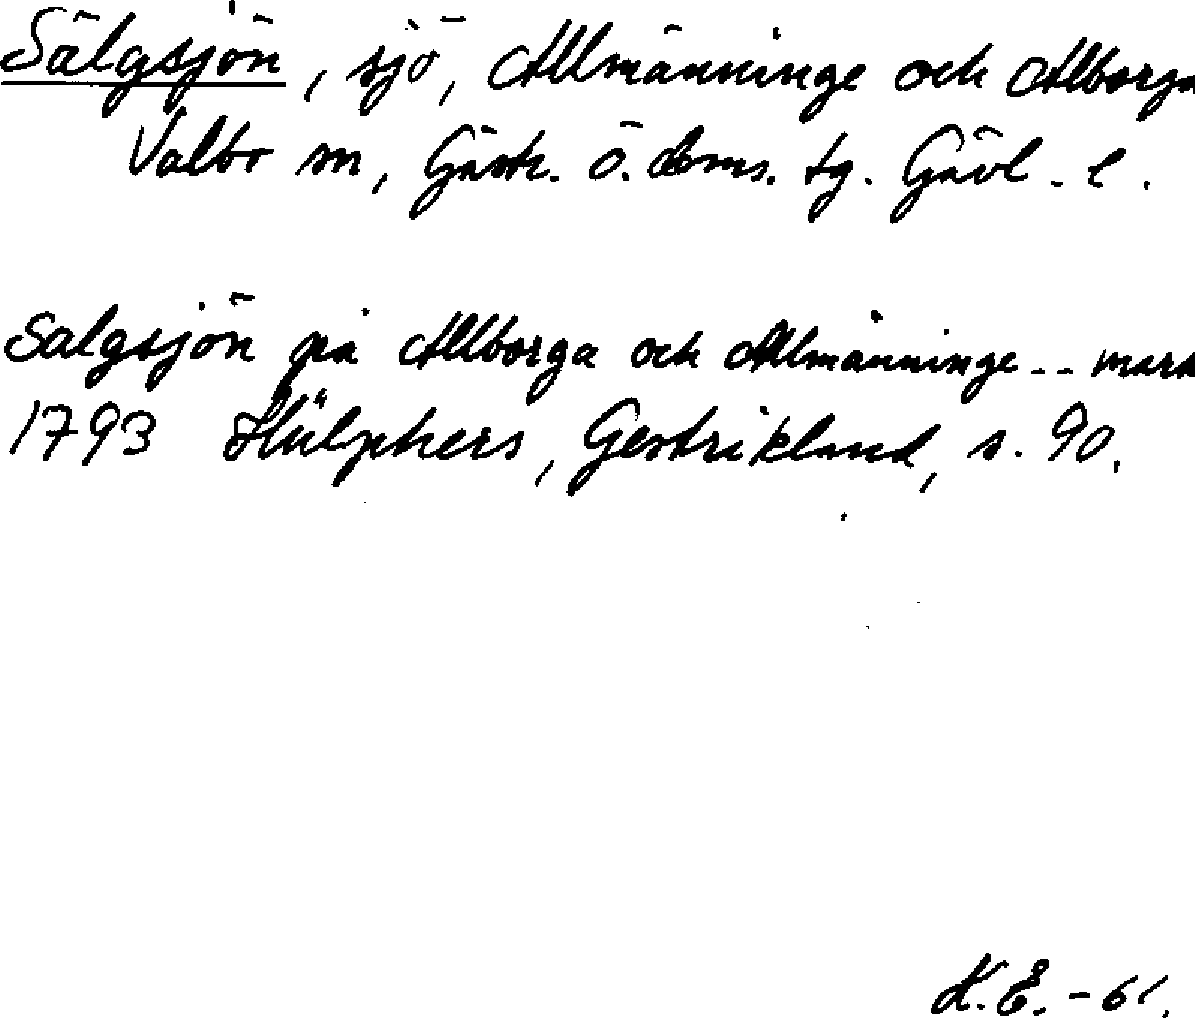 Sälgsjön, sjö, Allmänninge och Allborga
Valbo sn, Gästr. ö. doms. tg. Gävl. l.
Salgsjön på Allborga och Allmänninge -- mark
1793 Hülphers, Gestrikland, s. 90.
K.E. -61.